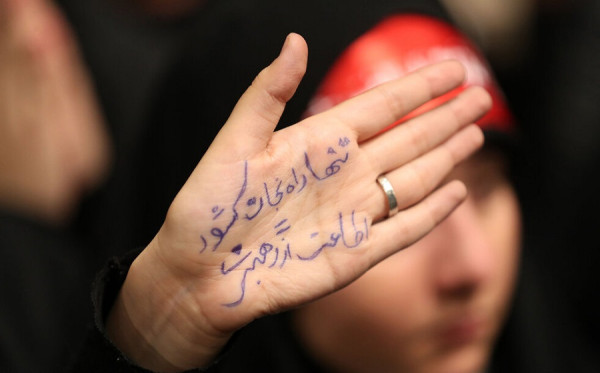 تنها راه نجات کشور
اطاعت از رهبر